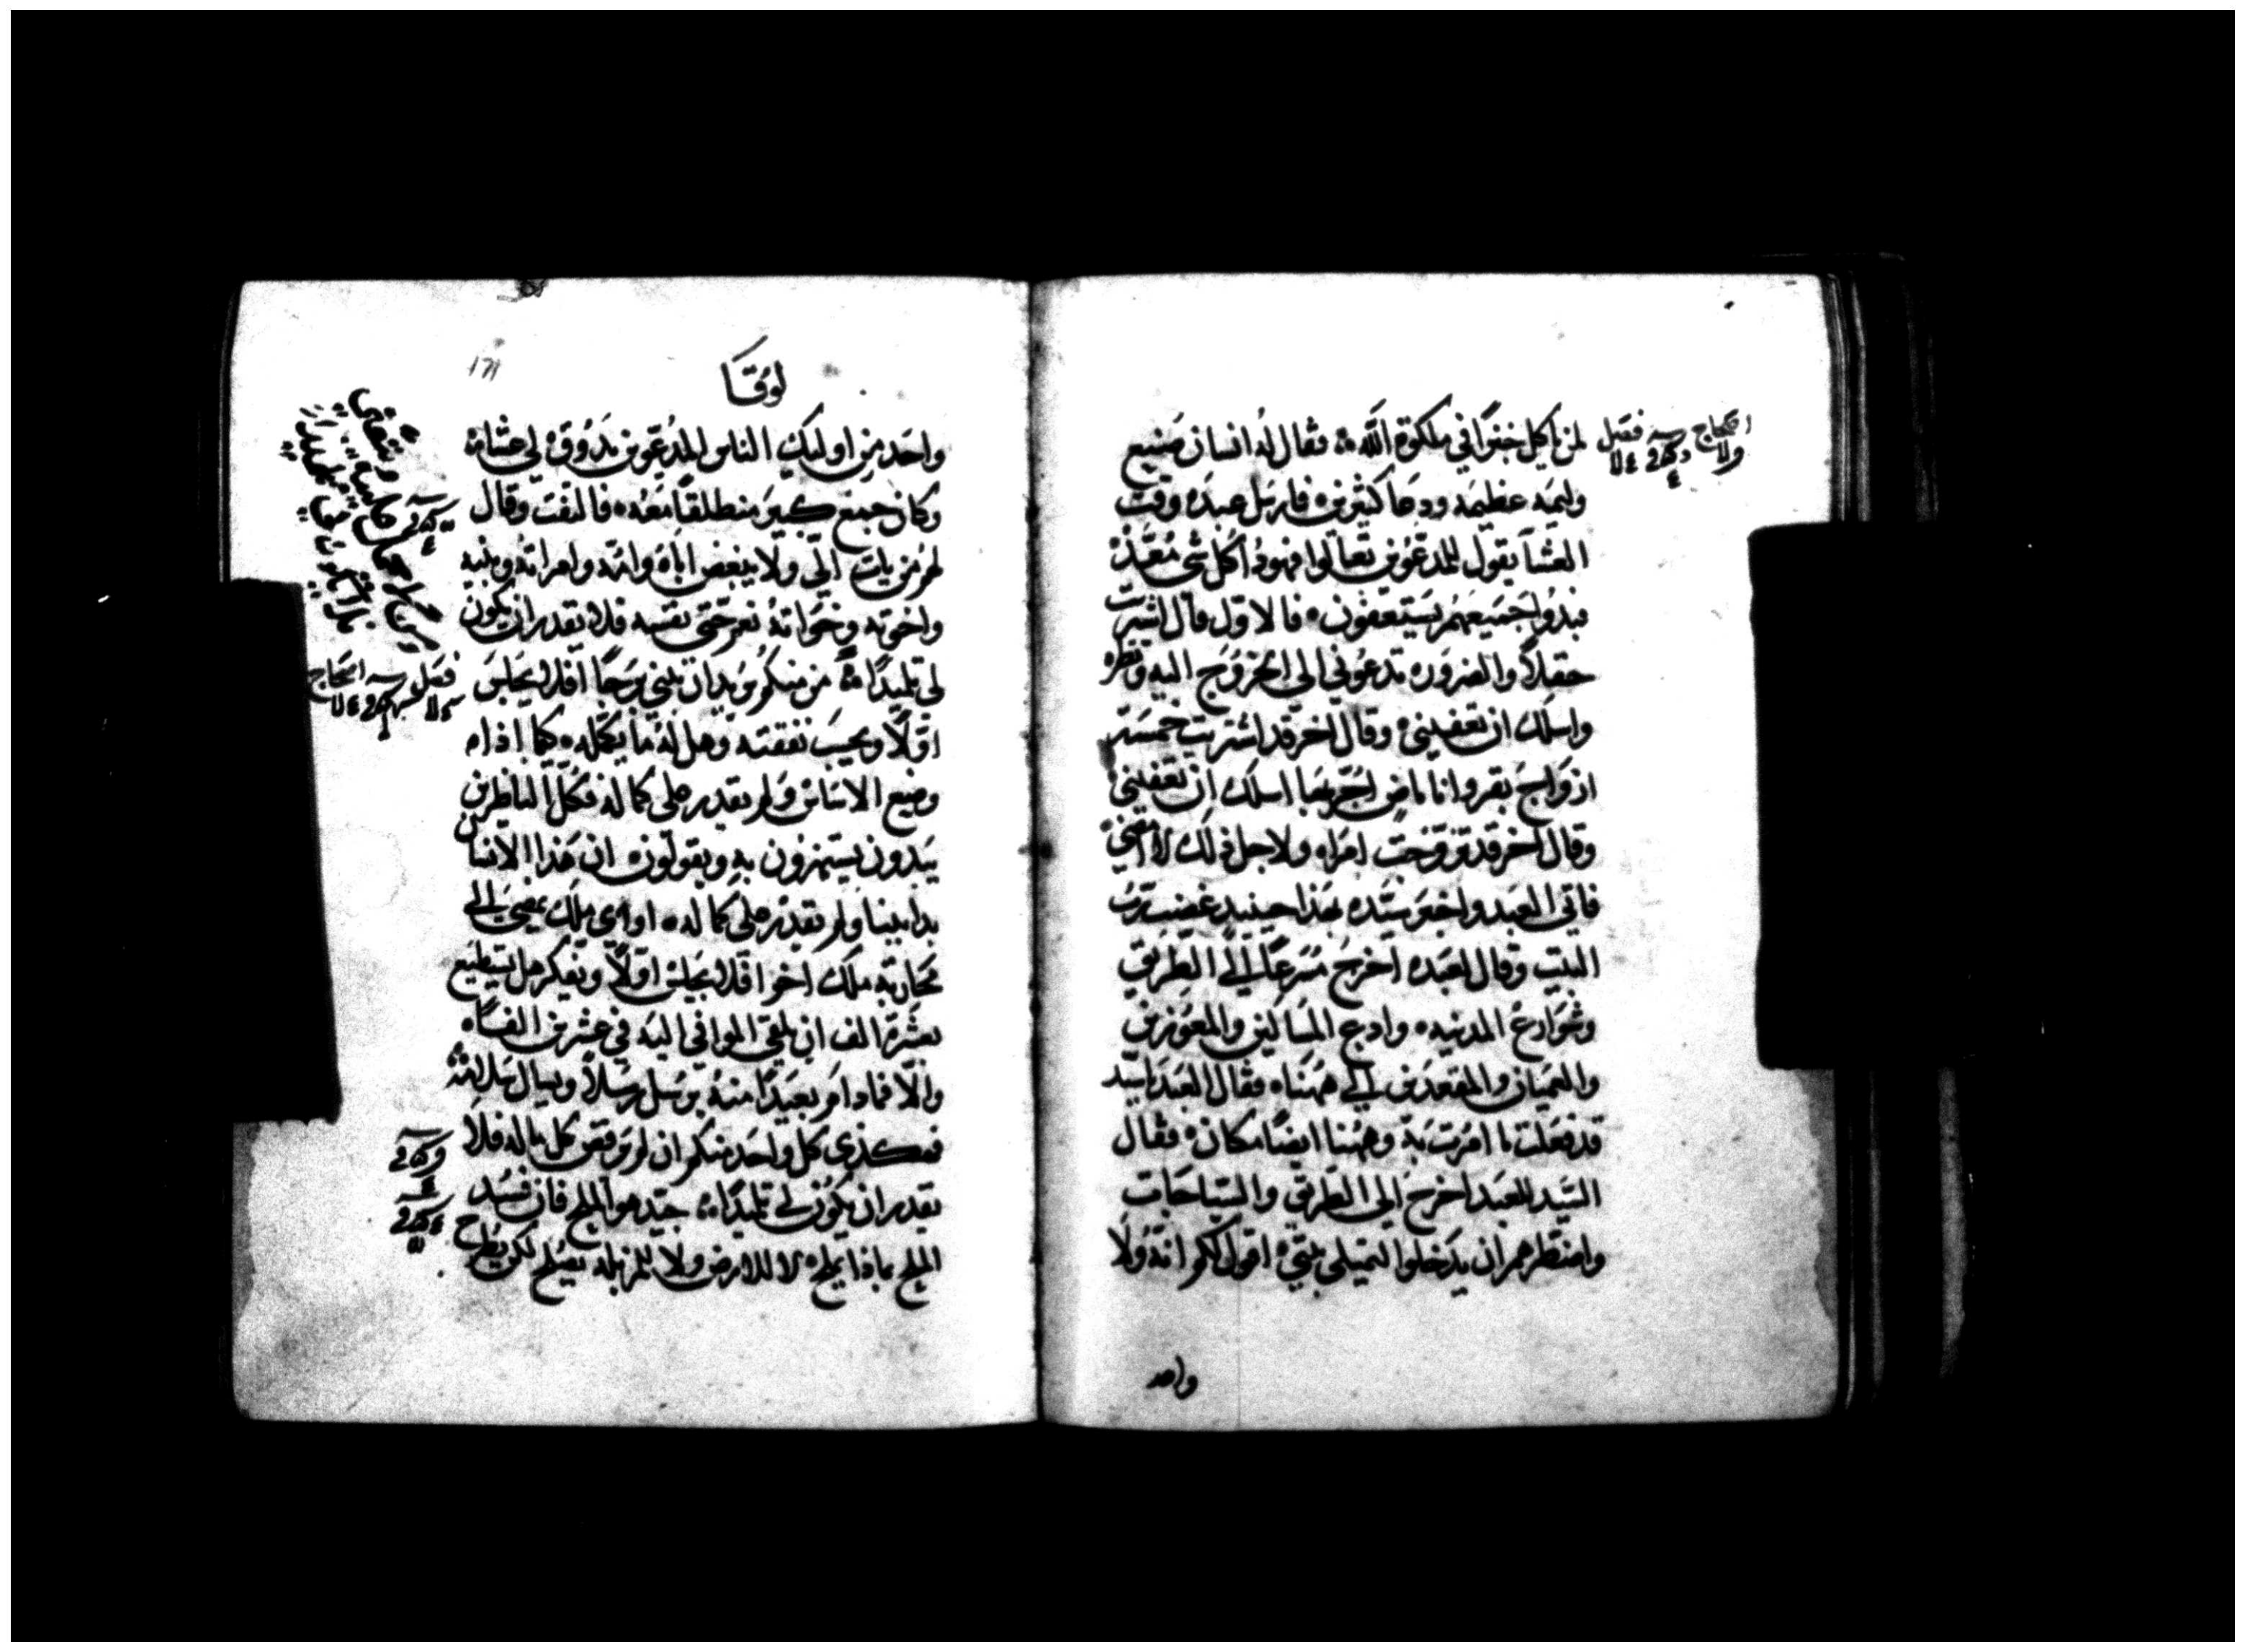 لمن ياكل خبزًا في ملكوة الله فقال له انسان صنيع
وليمه عظيمه ودعا كثيرين فارسل عبده وقت
العشا يقول للمدعوين تعالوا فهوذا كل شي معد
فبدوا جميعهم يستعفون فالاول قال اشتريت
حقلاً والضروره تدعوني الي الخروج اليه ونظره
واسلك ان تعفيني وقال اخر قد اشتريت خمسة
ازواج بقر وانا ماض اجربها اسلك ان تعفيني
وقال اخر قد تزوجت امراه ولاجل ذلك لا امضي
فاتي العبد واخبر سيده بهذا حينيد غضب رب
البيت وقال لعبده اخرج مسرعًا الي الطريق
وشوارع المدينه وادع المساكين والمعوزين
والعميان والمقعدين الي ههنا فقال العبد ياسيد
قد فعلت ما امرت به وههنا ايضًا مكان فقال
السيد للعبد اخرج الي الطريق والسياجات
واضطرهم ان يدخلوا ليمتلي بيتي اقول لكم انه ولا
واحد
لوقا
واحد من اوليك الناس المدعوين يدوق لي عشاء
وكان جمع كبير منطلقًا معه فالتفت وقال
لهم من يات الّي ولا يبغض اباه وامه وامراته وبنيه
واخوته وخواته نعم حتي نفسه فلا يقدر ان يكون
لي تلميدًا من منكم يريد ان يبني برجًا افلا يجلس
اولاً ويحسب نفقته وهل له ما يكمله كيما اذا
وضع الاساس ولم يقدر علي كماله فكل الناظرين
يبدون يستهزون به ويقولون ان هذا الانسان
بدا يبنا ولم يقدر علي كماله او اي ملك يمضي الي
محاربة ملك اخر افلا يجلس اولاً ويفكر هل يستطيع
بعشرة الف ان يلقي الموافي اليه في عشرين الفًا
والا فمادام بعيدًا منه يرسل رسلاً ويسال سلامته
فهكذي كل واحد منكم ان لم يرفض كل ماله فلا
يقدر ان يكون لي تلميدًا جيد هو الملح فان فسد
الملح بماذا يملح لا للارض ولا للمزبله يصلح لكن يطرح